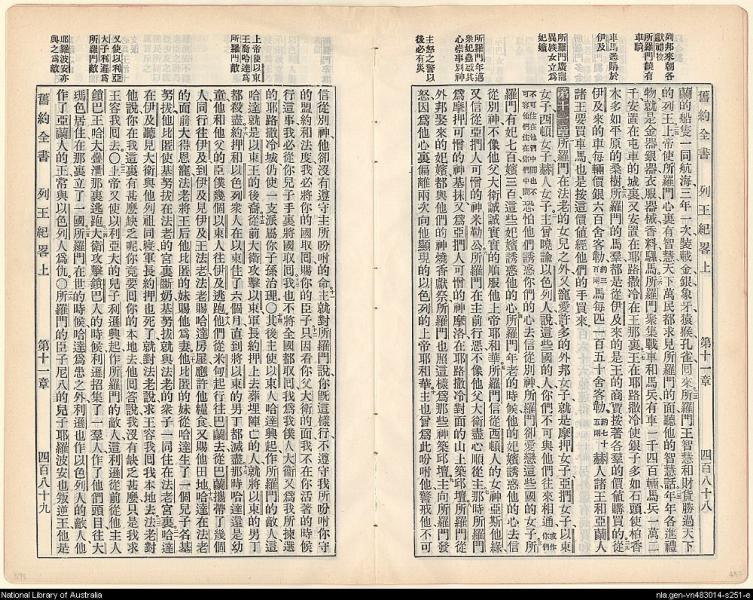 列邦來朝各獻禮物
所羅門饒有車騎
車馬悉購於伊及
所羅門廣寵異族女立爲妃嬪
所羅門年邁爲妃蠱惑其心崇事別神
主怒之警以後必有災
蘭的船隻一同航海三年一次裝載金銀象牙猿猴孔雀回來所羅門王智慧和財貨勝過天下
的列王上帝使所羅門心裏有智慧天下萬民都求見所羅門的面聽他的智慧話年年各進禮
物就是金器銀器衣服器械香料騾馬所羅門聚集戰車和馬兵有車一千四百輛馬兵一萬二
千安置在屯車的城裏又安置在耶路撒冷在王那裏王在耶路撒冷使銀子多如石頭使柏香
木多如平原的桑樹所羅門的馬羣都是從伊及來的是王的商賈按著各羣的價值購買的從
伊及來的車每輛價銀六百舍客勒馬每匹一百五十舍客勒赫人諸王和亞蘭人
諸王要買車馬也是按這價值經他們的手買來
第十一章所羅門在法老的女兒之外又寵愛許多的外邦女子就是摩押女子亞捫女子以東
女子西頓女子赫人女子主曾曉諭以色列人說這些國的人你們不可與他們往來相通
恐怕他們誘惑你們的心去信從別神所羅門卻愛戀這些國的女子所
羅門有妃七百嬪三百這些妃嬪誘惑他的心所羅門年老的時候他的妃嬪誘惑他的心去信
從別神不像他父大衛誠誠實實的順服他上帝耶和華所羅門信從西頓人的女神亞斯他綠
又信從亞捫人可憎的神米勒公所羅門在主前行惡不像他父大衛盡心順從主那時所羅門
爲摩押可憎的神基抹又爲亞捫人可憎的神摩洛在耶路撒冷對面的山上築邱壇所羅門從
外邦娶來的妃嬪都與他們的神燒香獻祭所羅門也照這樣爲那些神築邱壇主向所羅門發
怒因爲他心裏偏離兩次向他顯現的以色列的上帝耶和華主也曾爲此吩咐他警戒他不可
舊約全書 列王紀畧上 第十一章 四百八十八
上帝使以東王裔哈達爲所羅門敵
又使以利亞大子利遜爲所羅門敵
耶羅波安亦與之爲敵
信從別神他卻沒有遵守主所吩咐的命主就對所羅門說你旣這樣行不遵守我所吩咐你守
的盟約和法度我必將你的國取回賜你的臣子只因看你父大衛的面我不在你活著的時候
行這事我必從你兒子手裏將國取回我也不將全國都取回我爲我僕人大衛又爲我所揀選
的耶路撒冷城仍使一支派屬你子孫治理〇其後主使以東人哈達興起作所羅門的敵人這
哈達就是以東王的後裔從前大衛攻擊以東軍長約押上去葬埋陣亡的人就將以東的男丁
都殺盡約押和以色列衆人在以東住了六個月直到將以東的男丁都滅盡那時哈達還是幼
童他和他父的臣僕幾個以東人往伊及逃跑他們從米甸起行往巴蘭去從巴蘭攜帶了幾個
人同行往伊及到伊及見伊及王法老法老賜哈達房屋應許他糧食又賜他田地哈達在法老
的面前大得恩寵法老將王后他比匿的妹賜他爲妻他比匿的妹從哈達生了一個兒子名基
努拔他比匿使基努拔在法老的宮裏斷奶基努拔就與法老的衆子一同住在法老宮裏哈達
在伊及聽見大衛與他列祖同寢軍長約押也死了就對法老說求王容我回我本地去法老對
他說你在我這裏有甚麼缺乏呢你竟要回你的本地去他回答說我沒有缺乏甚麼只是我求
王容我回去〇上帝又使以利亞大的兒子利遜興起作所羅門的敵人這利遜從前從他主人
鎖巴王哈大底謝那裏逃跑大衛攻擊鎖巴人的時候利遜招集了一羣人作了他們頭目往大
瑪色居住在那裏立了一國所羅門在世的時候哈達爲患之外利遜也作以色列人的敵人他
作了亞蘭人的王常與以色列人爲仇〇所羅門的臣子尼八的兒子耶羅波安也叛逆王他是
舊約全書 列王紀畧上 第十一章 四百八十九
National Library of Australia
nla.gen-vn483014-s251-e